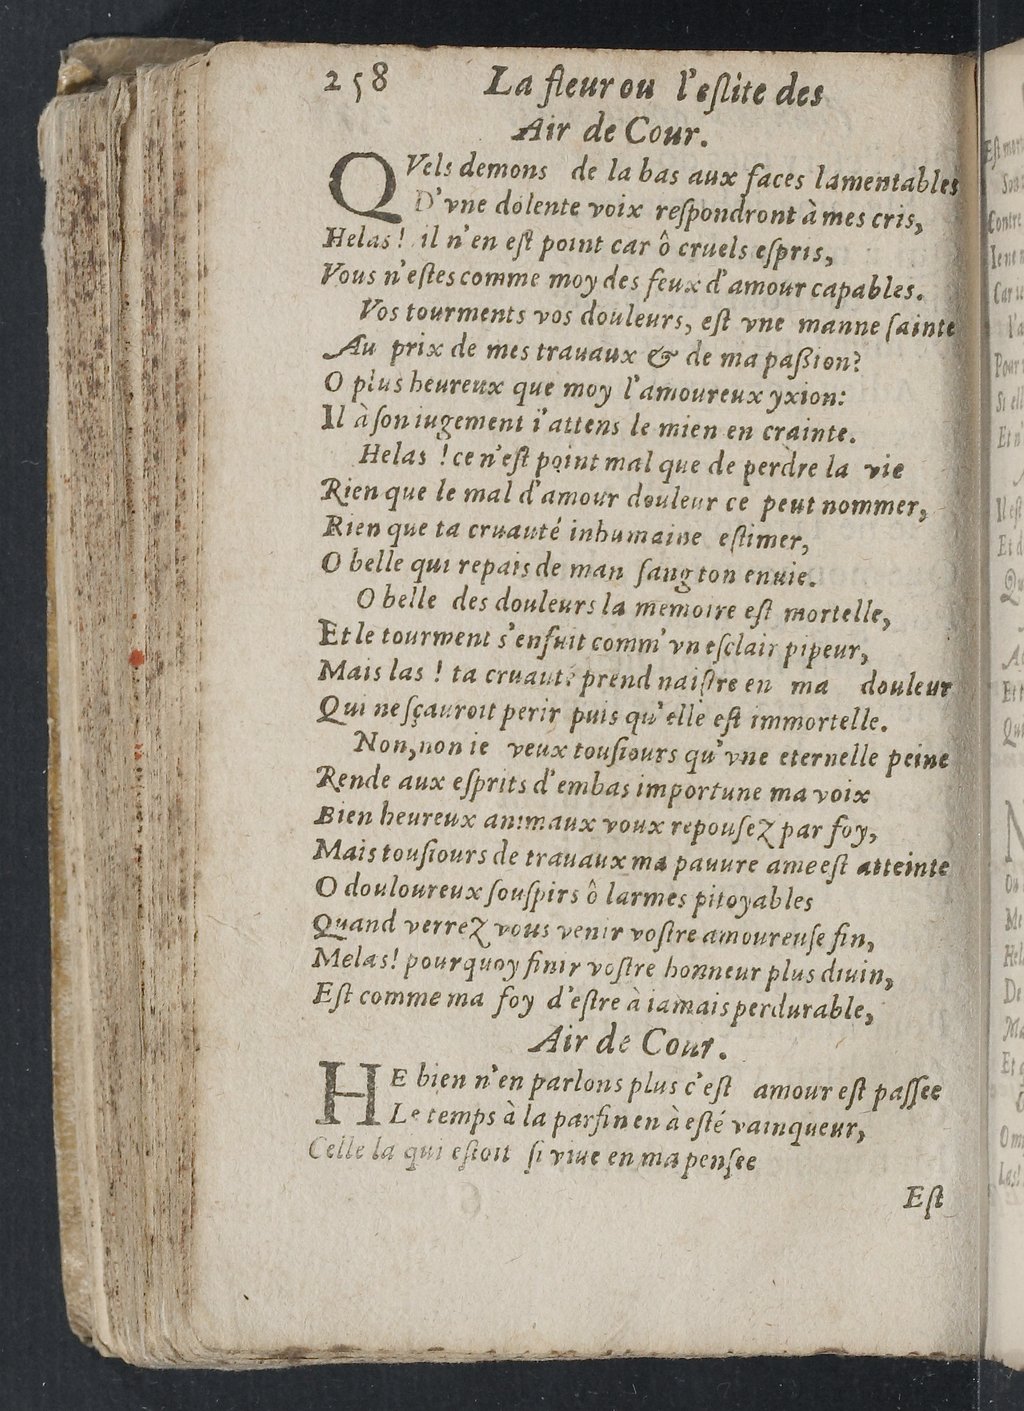 258 La fleur ou l'eslite des
Air de Cour.
QVels demons de la bas aux faces lamentables
D'vne dolente voix reſpondront à mes cris,
Helas! il n'en eſt point car ô cruels eſpris,
Vous n'eſtes comme moy des feux d'amour capables.
Vos tourments vos douleurs, eſt vne manne ſainte
Au prix de mes trauaux & de ma paßion?
O plus heureux que moy l'amoureux yxion:
Il à ſon iugement i'attens le mien en crainte.
Helas ! ce n'eſt point mal que de perdre la vie
Rien que le mal d'amour douleur ce peut nommer,
Rien que ta cruauté inhumaine eſtimer,
O belle qui repais de man ſang ton enuie.
O belle des douleurs la memoire eſt mortelle,
Et le tourment s'enfuit comm' vn eſclair pipeur,
Mais las ! ta cruauté prend naiſtre en ma douleur
Qui ne ſçauroit perir puis qu'elle eſt immortelle.
Non, non ie veux touſiours qu'vne eternelle peine
Rende aux eſprits d'embas importune ma voix
Bien heureux animaux voux repouſeZ par foy,
Mais touſiours de trauaux ma pauure ame eſt atteinte
O douloureux ſouſpirs ô larmes pitoyables
Quand verreZ vous venir voſtre amoureuſe fin,
Melas! pourquoy finir voſtre honneur plus diuin,
Eſt comme ma foy d'eſtre à iamais perdurable,
Air de Cour.
HE bien n'en parlons plus c'eſt amour eſt paſſee
Le temps à la parfin en à eſté vainqueur,
Celle la qui eſtoit ſi viue en ma penſee
Eſt